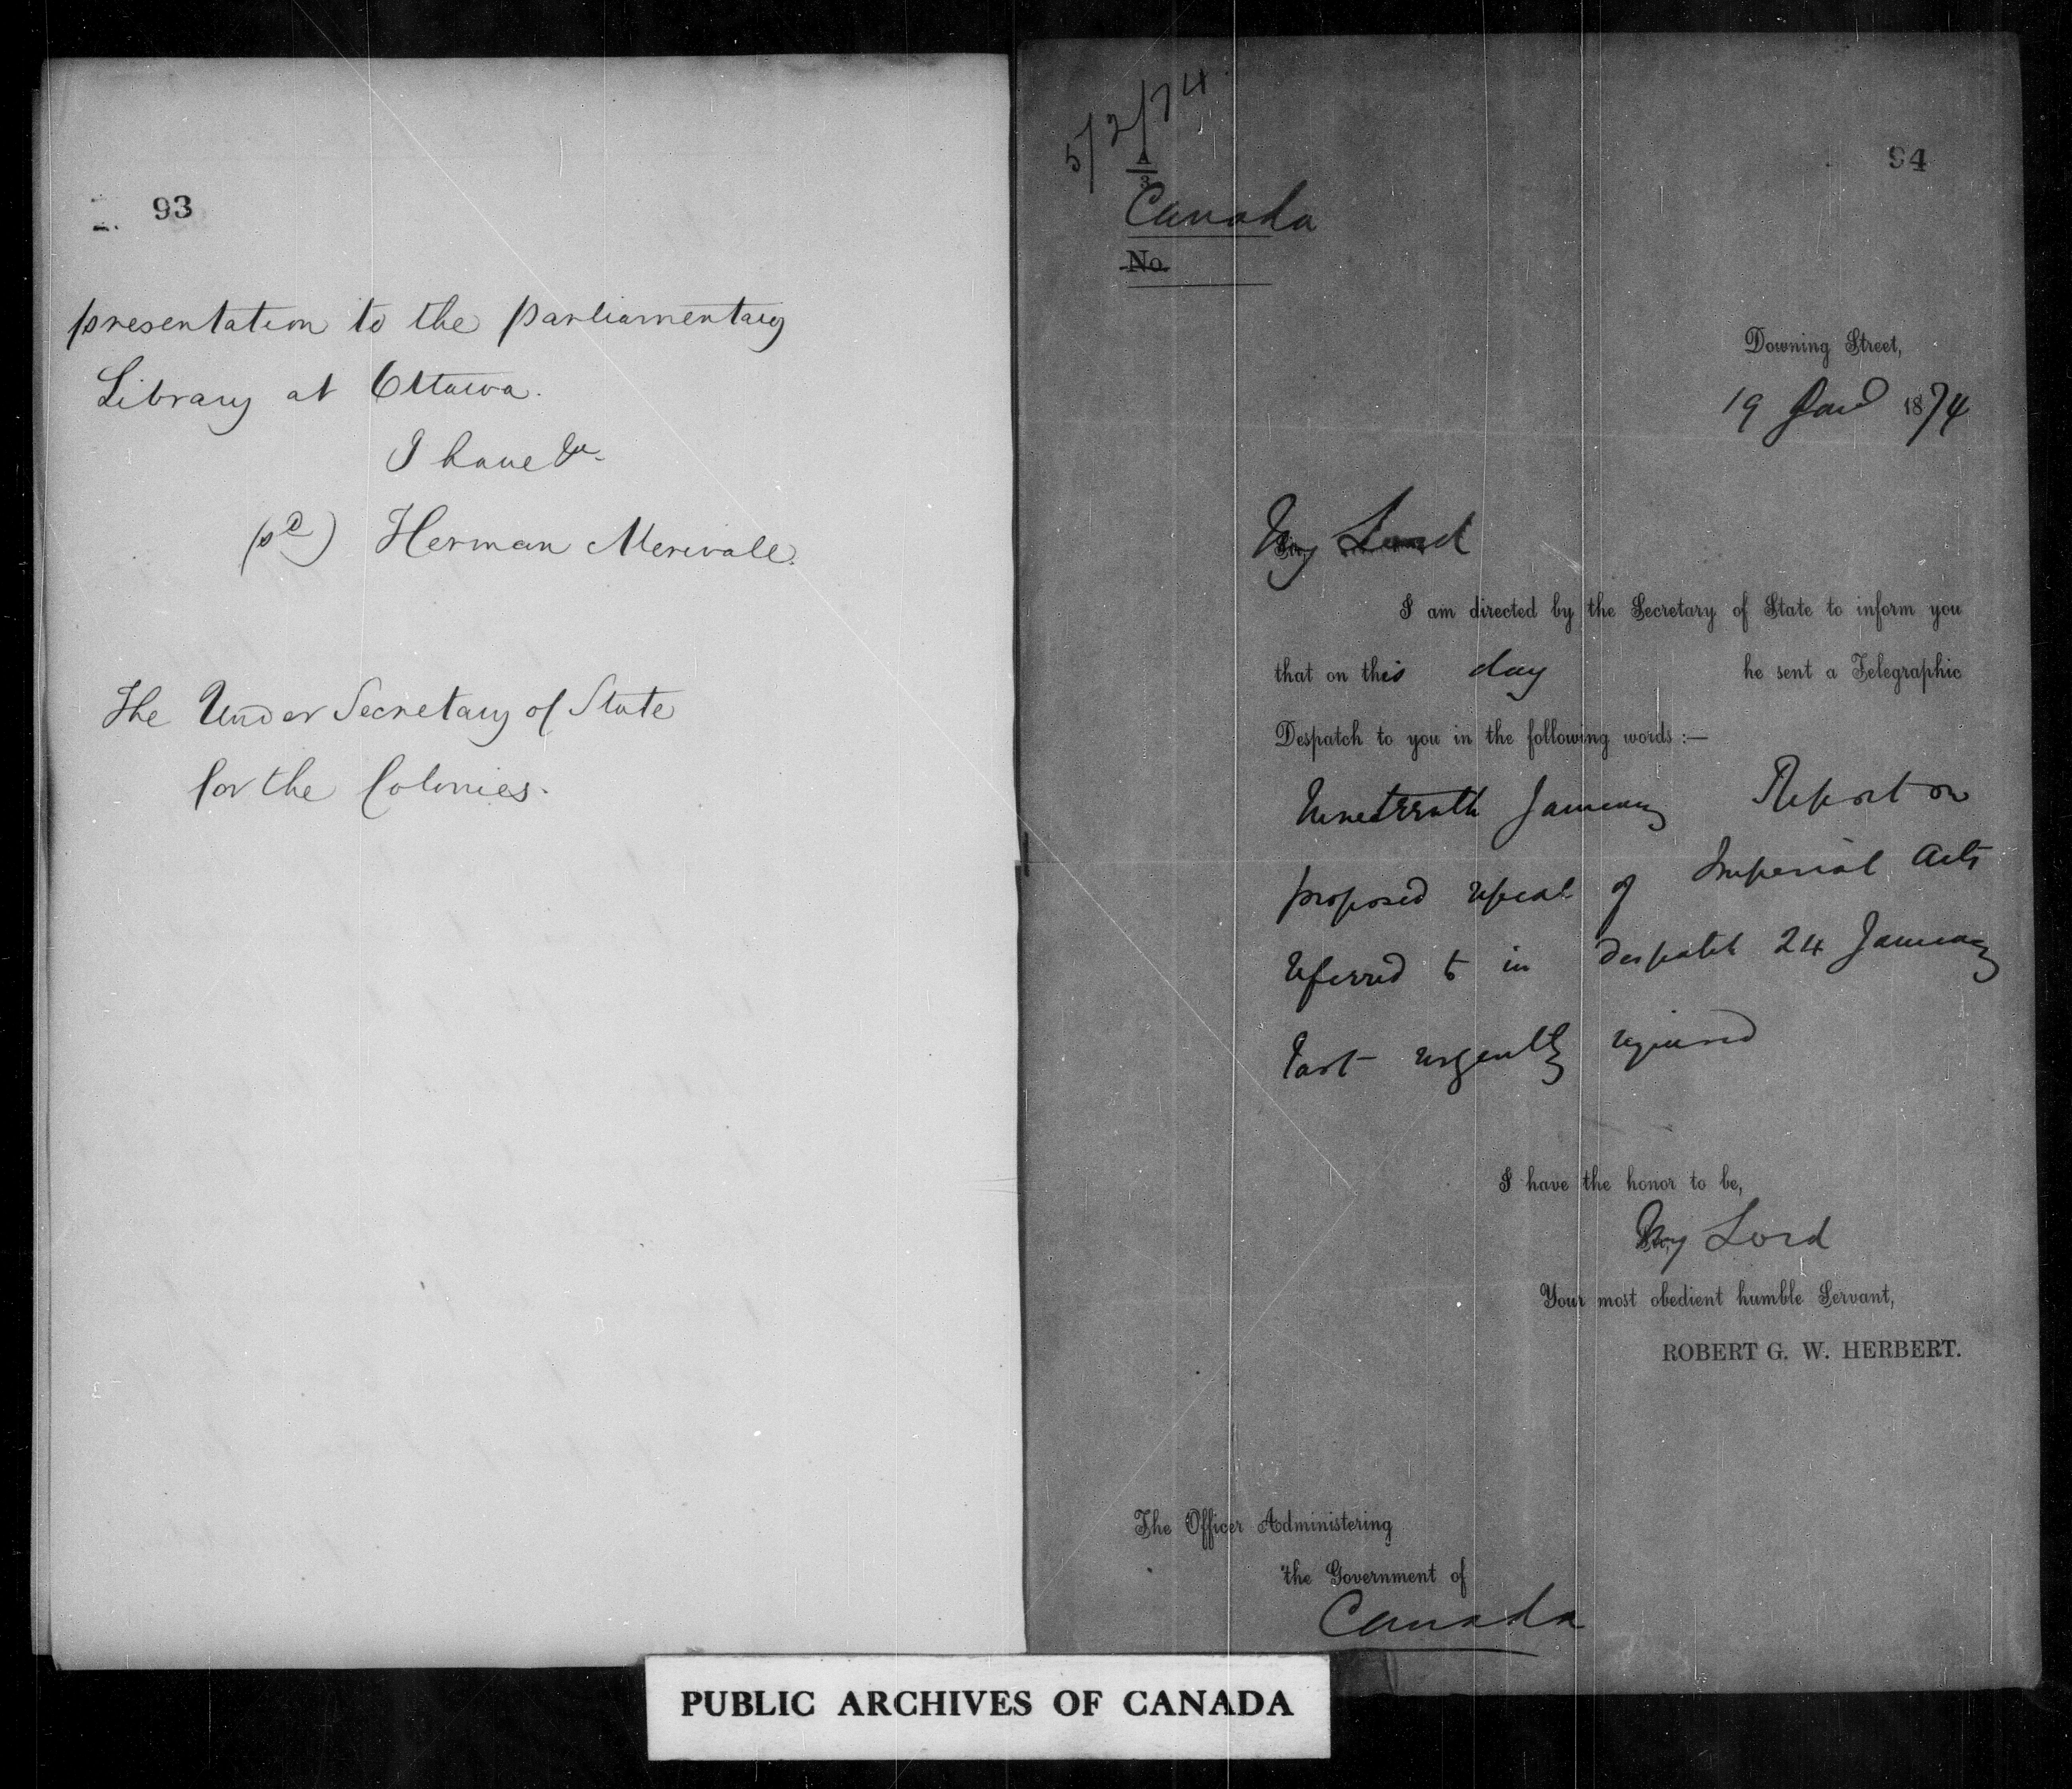 93
presentation to the parliamentary
Library at Ottawa.
I have &c.
(sd) Herman Merivale.
The Under Secretary of State
for the Colonies.
5/2/74
94
A
3
Canada
No.
Downing Street,
19 Jany 1874
My Lord
I am directed by the Secretary of State to inform you
that on this day he sent a Telegraphic
Despatch to you in the following words :—
Nineteenth January Report on
proposed repeal of Imperial Acts
referred to in despatch 24 January
last urgently required
I have the honor to be,
My Lord
Your most obedient humble Servant,
ROBERT G. W. HERBERT.
The Officer Administering
the Government of
Canada
PUBLIC ARCHIVES OF CANADA